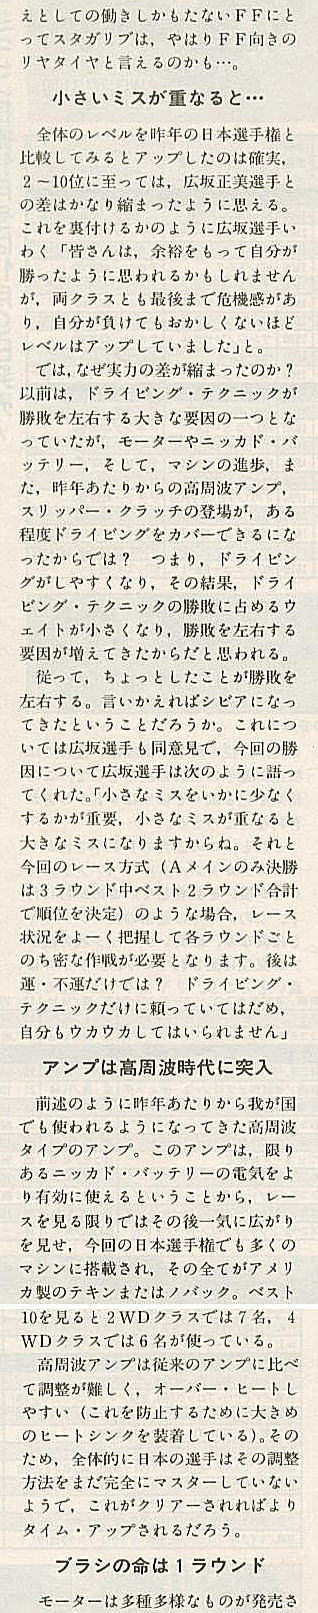 えとしての働きしかもたないＦＦにと
ってスタガリブは，やはりＦＦ向きの
リヤタイヤと言えるのかも…。
小さいミスが重なると…
全体のレベルを昨年の日本選手権と
比較してみるとアップしたのは確実，
２〜10位に至っては，広坂正美選手と
の差はかなり縮まったように思える。
これを裏付けるかのように広坂選手い
わく「皆さんは，余裕をもって自分が
勝ったように思われるかもしれません
が，両クラスとも最後まで危機感があ
り，自分が負けてもおかしくないほど
レベルはアップしていました」と。
では，なぜ実力の差が縮まったのか？
以前は，ドライビング・テクニックが
勝敗を左右する大きな要因の一つとな
っていたが，モーターやニッカド・バ
ッテリー，そして，マシンの進歩，ま
た，昨年あたりからの高周波アンプ，
スリッパー・クラッチの登場が，ある
程度ドライビングをカバーできるにな
ったからでは？　つまり，ドライビン
グがしやすくなり，その結果，ドライ
ビング・テクニックの勝敗に占めるウ
ェイトが小さくなり，勝敗を左右する
要因が増えてきたからだと思われる。
従って，ちょっとしたことが勝敗を
左右する。言いかえればシビアになっ
てきたということだろうか。これにつ
いては広坂選手も同意見で，今回の勝
因について広坂選手は次のように語っ
てくれた。「小さなミスをいかに少なく
するかが重要，小さなミスが重なると
大きなミスになりますからね。それと
今回のレース方式（Ａメインのみ決勝
は３ラウンド中ベスト２ラウンド合計
で順位を決定）のような場合，レース
状況をよーく把握して各ラウンドごと
のち密な作戦が必要となります。後は
運・不運だけでは？　ドライビング・
テクニックだけに頼っていてはだめ，
自分もウカウカしてはいられません」
アンプは高周波時代に突入
前述のように昨年あたりから我が国
でも使われるようになってきた高周波
タイプのアンプ。このアンプは，限り
あるニッカド・バッテリーの電気をよ
り有効に使えるということから，レー
スを見る限りではその後一気に広がり
を見せ，今回の日本選手権でも多くの
マシンに搭載され，その全てがアメリ
カ製のテキンまたはノバック。ベスト
10を見ると２WDクラスでは７名，４
WDクラスでは６名が使っている。
高周波アンプは従来のアンプに比べ
て調整が難しく，オーバー・ヒートし
やすい（これを防止するために大きめ
のヒートシンクを装着している）。その
ため，全体的に日本の選手はその調整
方法をまだ完全にマスターしていない
ようで，これがクリアーされればより
タイム・アップされるだろう。
ブラシの命は１ラウンド
モーターは多種多様なものが発売さ